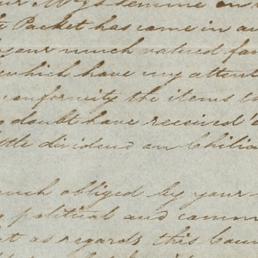 Packet has come in au
your much valued fav
which have my attent
onformity the items t
doubt have received
ttle dividend on Chilia
much obliged by your
political and comm
t as regards this Coun